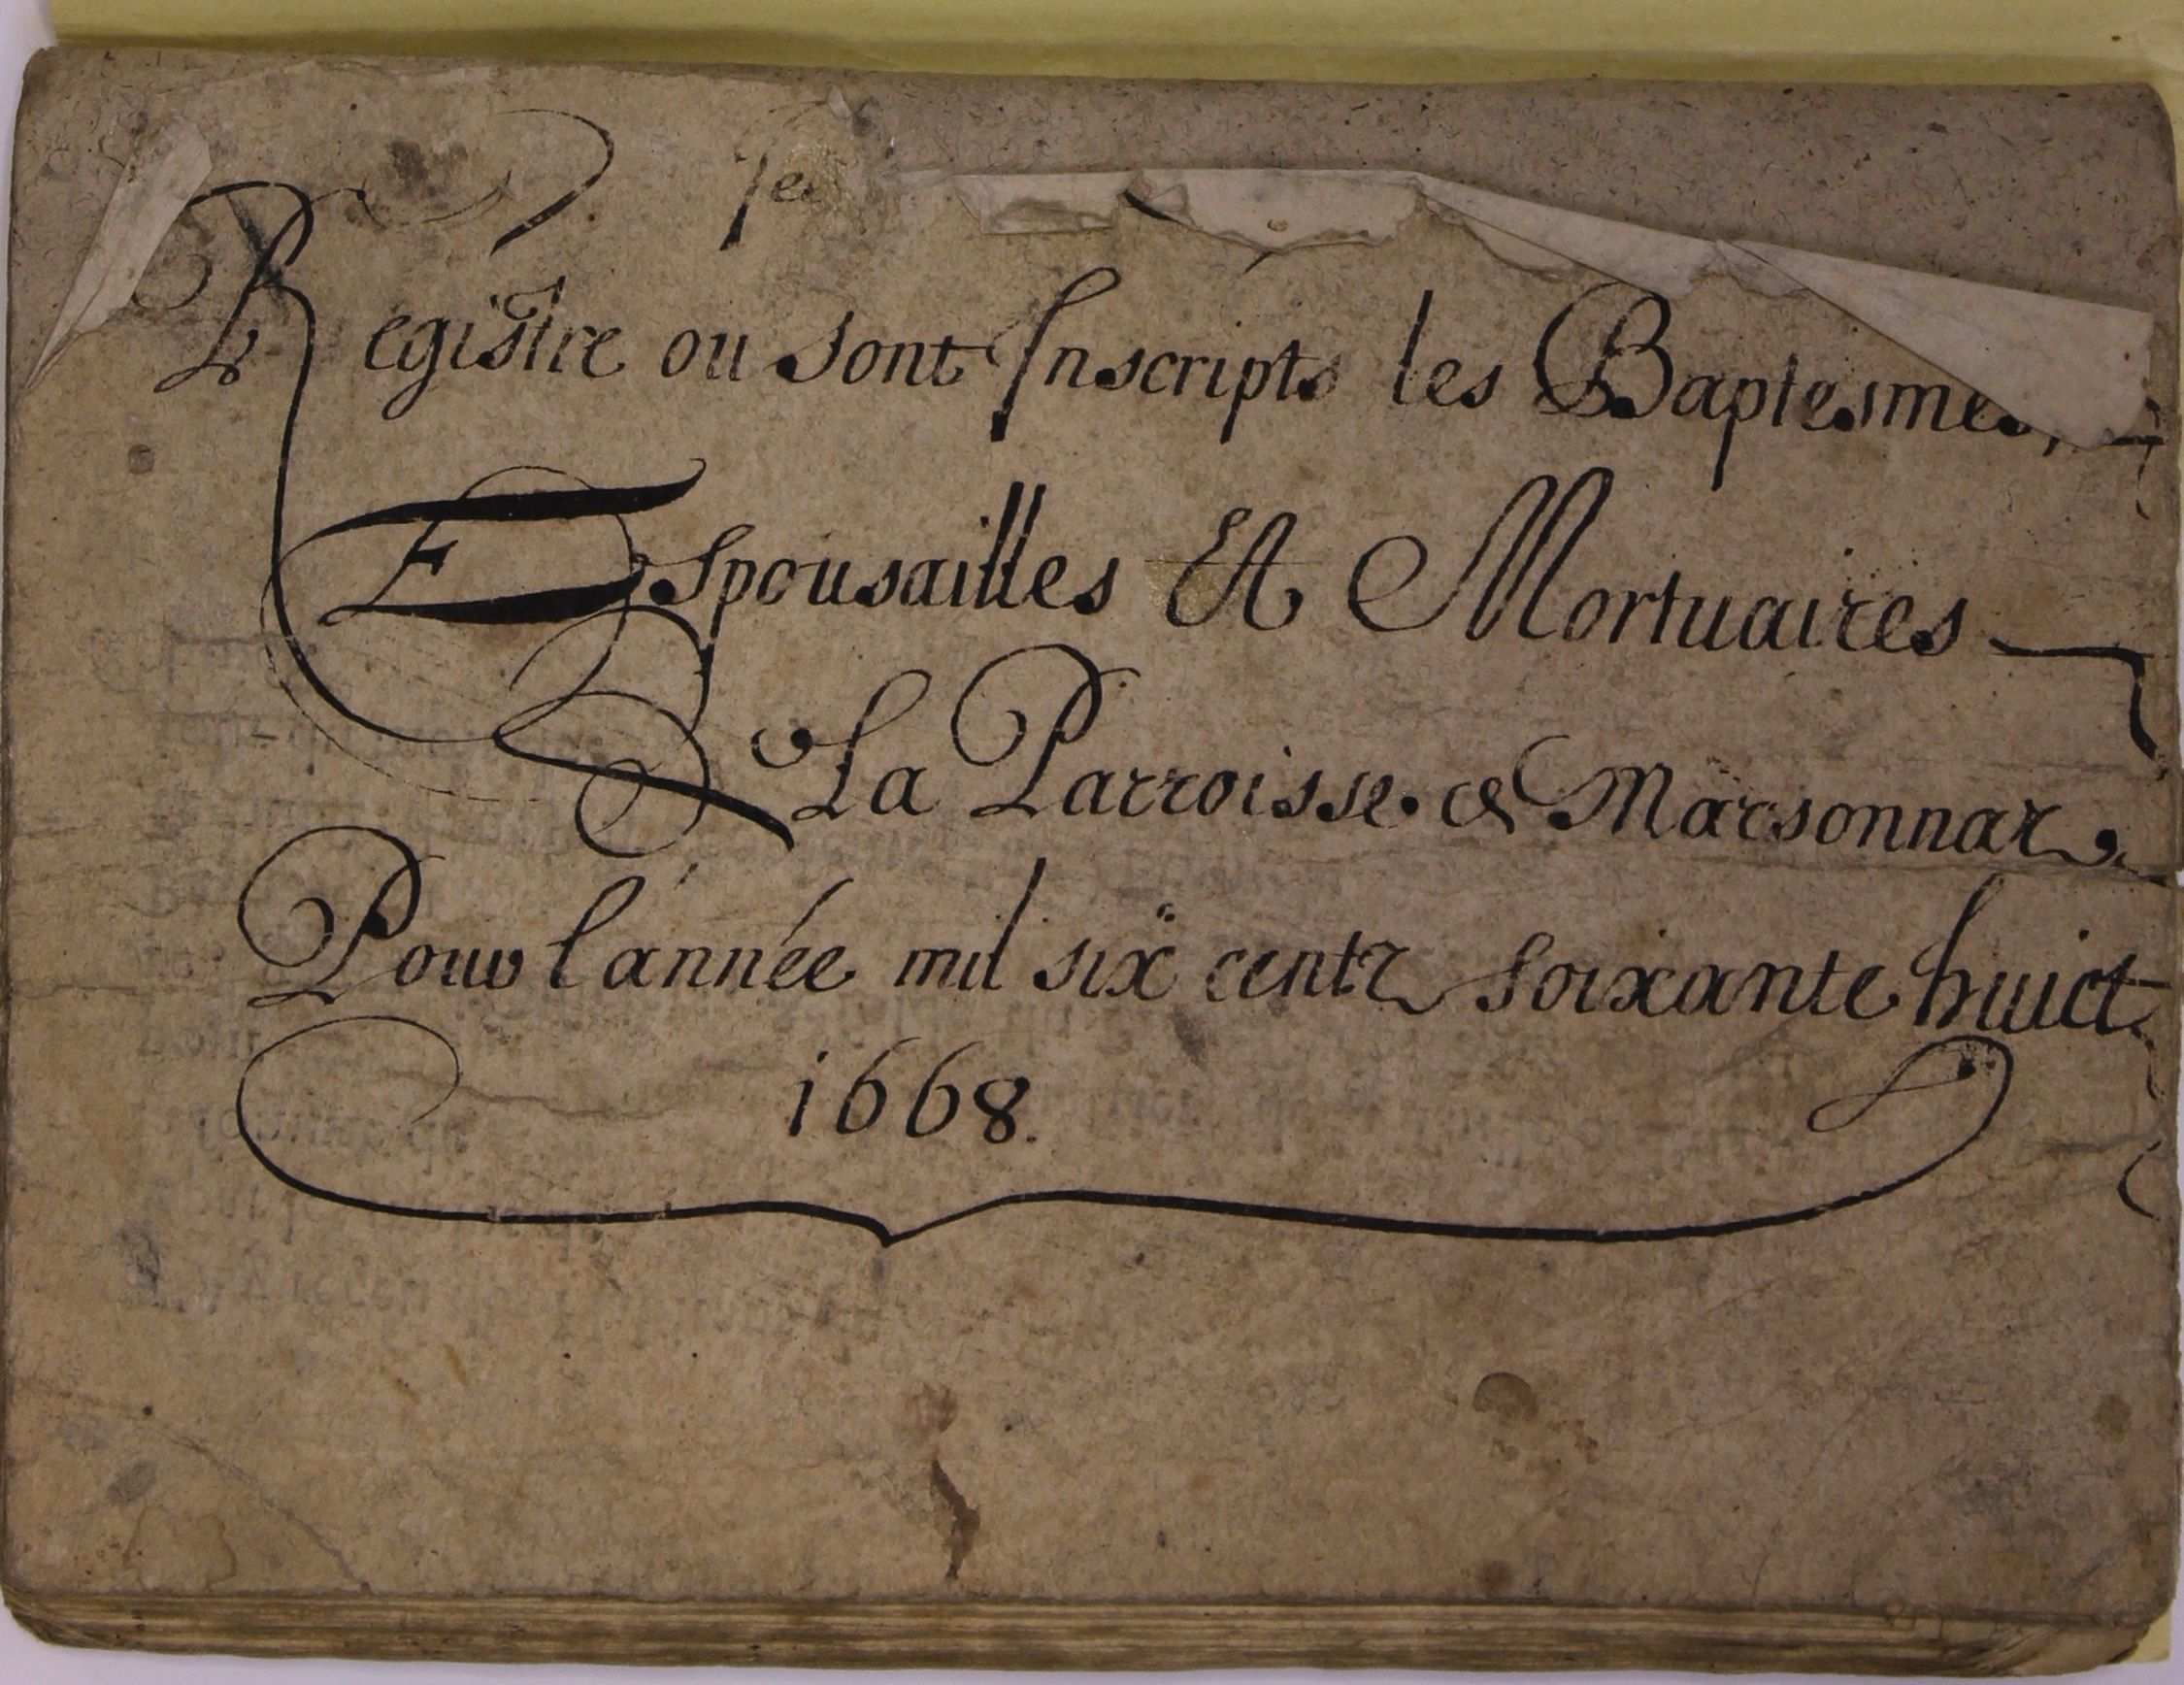 Registre ou sont Inscripts les Baptesmes,
Espousailles Et Mortuaires
La Parroisse de Marsonnaz
Pour l'année mil six centz soixante huict
1668.